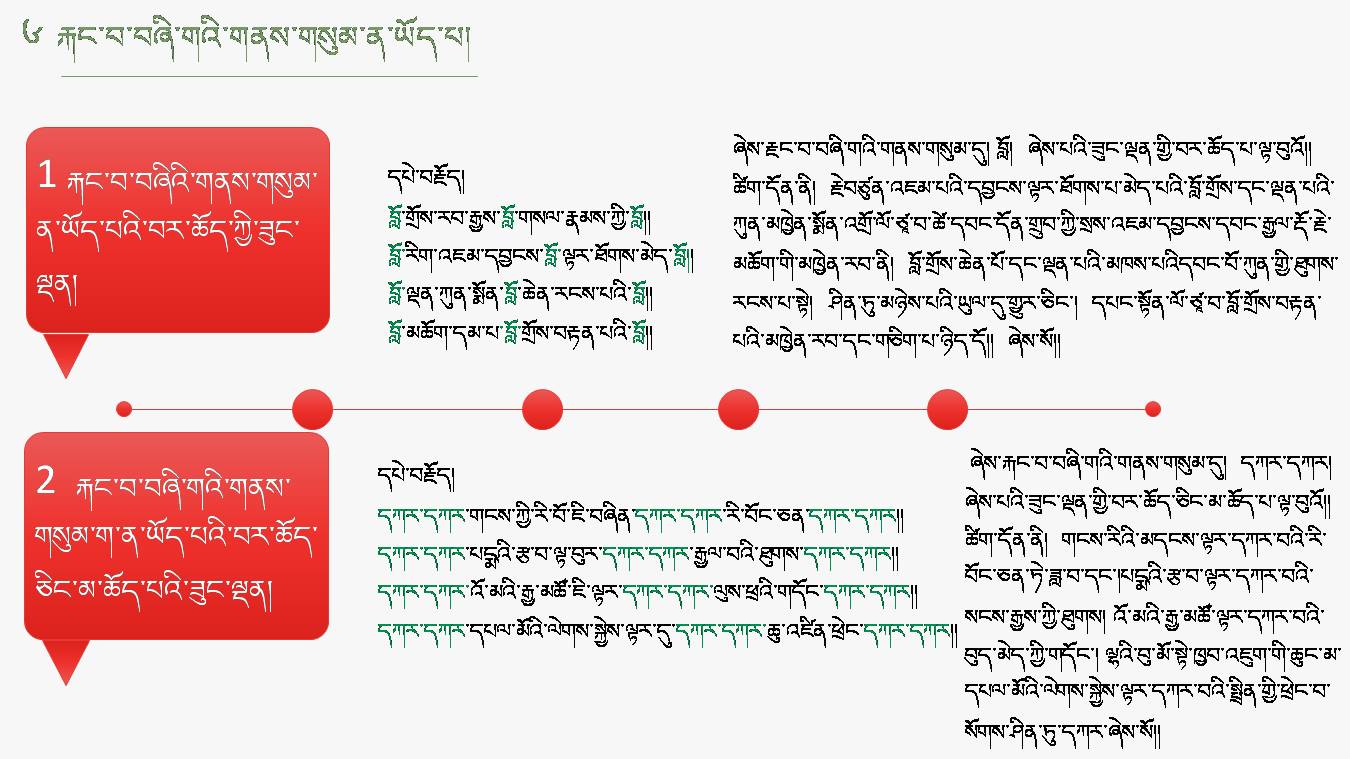 ༦ རྐང་བ་བཞི་གའི་གནས་གསུམ་ན་ཡོད་པ།
1 རྐང་བ་བཞིའི་གནས་གསུམ་
ན་ཡོད་པའི་བར་ཆོད་ཀྱི་ཟུང་
ལྡན།
དཔེ་བརྗོད།
བློ་གྲོས་རབ་རྒྱས་བློ་གསལ་རྣམས་ཀྱི་བློ།།
བློ་རིག་འཇམ་དབྱངས་བློ་ལྟར་ཐོགས་མེད་བློ།།
བློ་ལྡན་ཀུན་སྨོན་བློ་ཆེན་རངས་པའི་བློ།།
བློ་མཆོག་དམ་པ་བློ་གྲོས་བརྟན་པའི་བློ།།
ཞེས་རྐང་བ་བཞི་གའི་གནས་གསུམ་དུ། བློ། ཞེས་པའི་ཟུང་ལྡན་གྱི་བར་ཆོད་པ་ལྟ་བུའོ།།
ཚིག་དོན་ནི། རྗེ་བཙུན་འཇམ་པའི་དབྱངས་ལྟར་ཐོགས་པ་མེད་པའི་བློ་གྲོས་དང་ལྡན་པའི་
ཀུན་མཁྱེན་སྨོན་འགྲོ་ལོ་ཙཱ་བ་ཚེ་དབང་དོན་གྲུབ་ཀྱི་སྲས་འཇམ་དབྱངས་དབང་རྒྱལ་རྡོ་རྗེ་
མཆོག་གི་མཁྱེན་རབ་ནི། བློ་གྲོས་ཆེན་པོ་དང་ལྡན་པའི་མཁས་པའིདབང་པོ་ཀུན་གྱི་ཐུགས་
རངས་པ་སྟེ། ཤིན་ཏུ་མཉེས་པའི་ཡུལ་དུ་གྱུར་ཅིང་། དཔང་སྟོན་ལོ་ཙཱ་བ་བློ་གྲོས་བརྟན་
པའི་མཁྱེན་རབ་དང་གཅིག་པ་ཉིད་དོ།། ཞེས་སོ།།
2 རྐང་བ་བཞི་གའི་གནས་
གསུམ་ག་ན་ཡོད་པའི་བར་ཆོད་
ཅིང་མ་ཆོད་པའི་ཟུང་ལྡན།
དཔེ་བརྗོད།
དཀར་དཀར་གངས་ཀྱི་རི་བོ་ཇི་བཞིན་དཀར་དཀར་རི་བོང་ཅན་དཀར་དཀར།།
དཀར་དཀར་པདྨའི་རྩ་བ་ལྟ་བུར་དཀར་དཀར་རྒྱལ་བའི་ཐུགས་དཀར་དཀར།།
དཀར་དཀར་འོ་མའི་རྒྱ་མཚོ་ཇི་ལྟར་དཀར་དཀར་ལུས་ཕྲའི་གདོང་དཀར་དཀར།།
དཀར་དཀར་དཔལ་མོའི་ལེགས་སྐྱེས་ལྟར་དུ་དཀར་དཀར་ཆུ་འཛིན་ཕྲེང་དཀར་དཀར།།
ཞེས་རྐང་བ་བཞི་གའི་གནས་གསུམ་དུ། དཀར་དཀར།
ཞེས་པའི་ཟུང་ལྡན་གྱི་བར་ཆོད་ཅིང་མ་ཆོད་པ་ལྟ་བུའོ།།
ཚིག་དོན་ནི། གངས་རིའི་མདངས་ལྟར་དཀར་བའི་རི་
བོང་ཅན་ཏེ་ཟླ་བ་དང་།པདྨའི་རྩ་བ་ལྟར་དཀར་བའི་
སངས་རྒྱས་ཀྱི་ཐུགས། འོ་མའི་རྒྱ་མཚོ་ལྟར་དཀར་བའི་
བུད་མེད་ཀྱི་གདོང་། ལྷའི་བུ་མོ་སྟེ་ཁྱབ་འཇུག་གི་ཆུང་མ་
དཔལ་མོའི་ལེགས་སྐྱེས་ལྟར་དཀར་བའི་སྤྲིན་གྱི་ཕྲེང་བ་
སོགས་ཤིན་ཏུ་དཀར་ཞེས་སོ།།